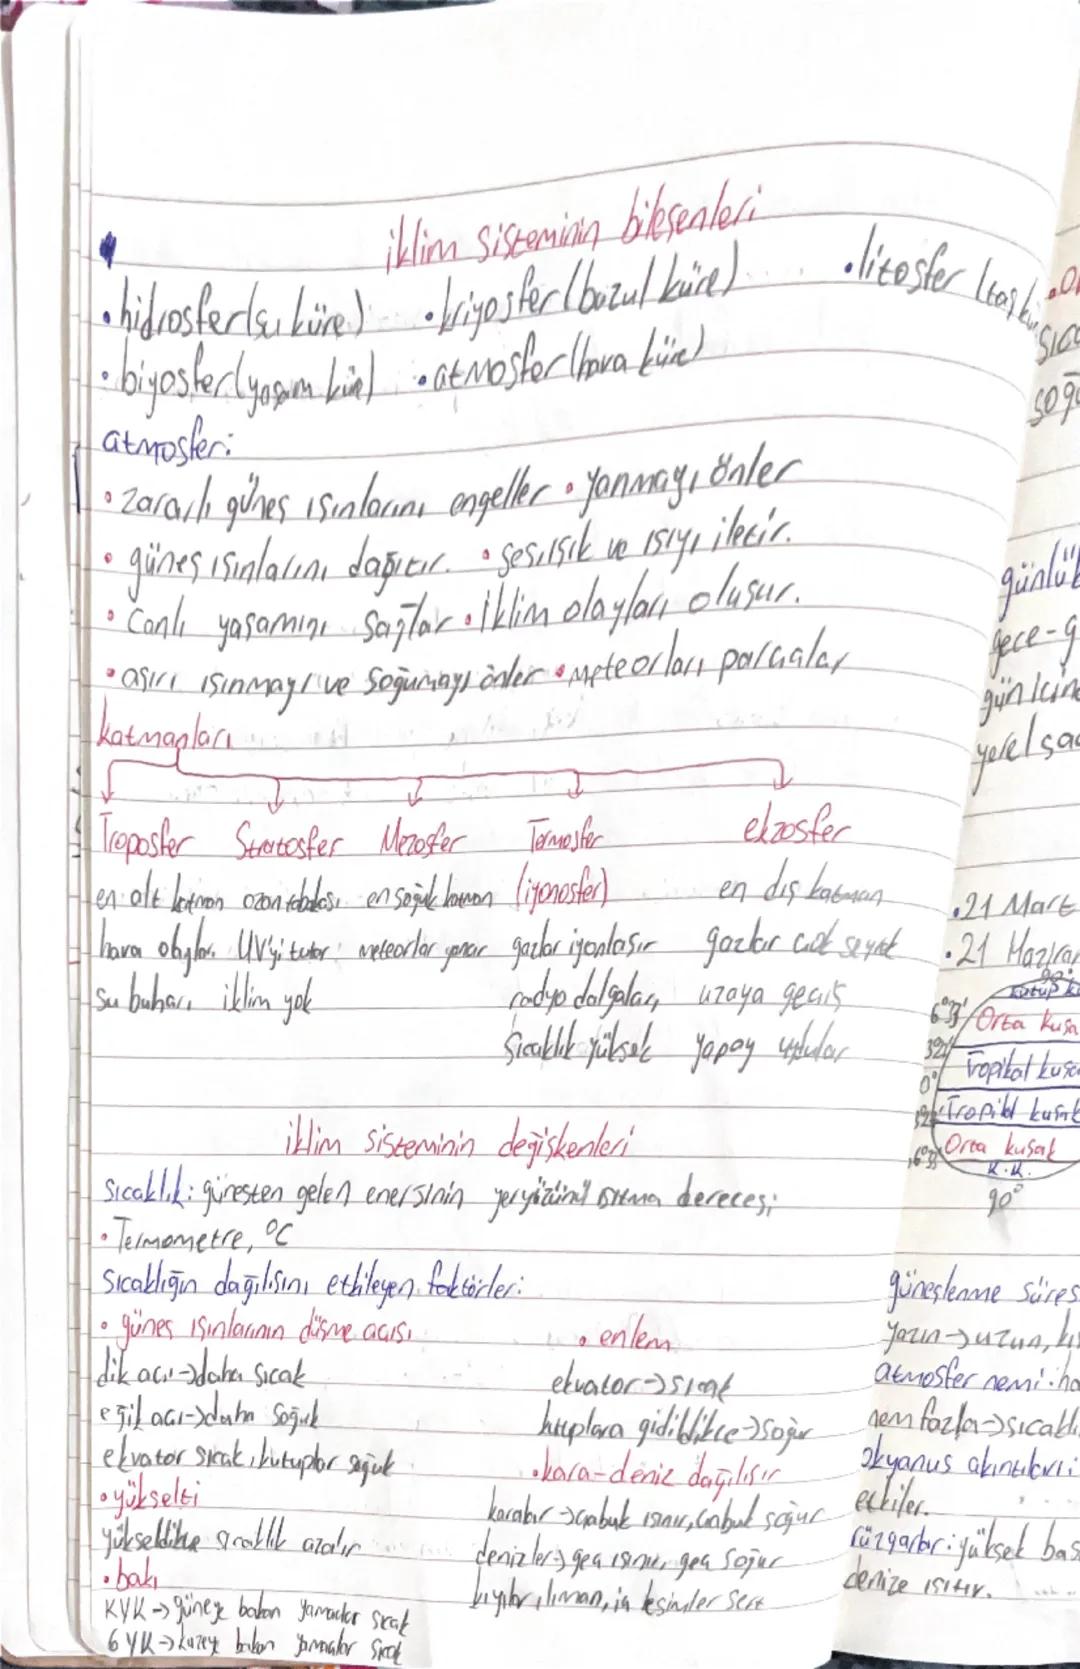 iklim sisteminin bileşenleri
• hidrosfer(su küre) • kriyosfer(buzul küre) • litosfer (taş
• biyosfer(yaşam küre) • atmosfer(hava küre)
atmosfer:
• zararlı güneş ışınlarını engeller • yanmayı önler
• güneş ışınlarını dağıtır. • ses, ışık ve ısıyı iletir.
• Canlı yaşamını sağlar • İklim olayları oluşur.
• aşırı ısınmayı ve soğumayı önler • Meteorları parçalar
katmanları
Troposfer Stratosfer Mezosfer Termosfer ekzosfer
en alt katman ozon tabakası en soğuk katman (iyonosfer) en dış katman
hava olayları UV'yi tutar meteorlar yanar gazlar iyonlaşır gazlar çok seyrek
su buharı iklim yok radyo dalgaları uzaya geçiş
Sıcaklık yüksek yapay uydular
iklim sisteminin değişkenleri
Sıcaklık: güneşten gelen enerjinin yeryüzünü ısıtma derecesi
• Termometre, °C
Sıcaklığın dağılışını etkileyen faktörler:
• güneş ışınlarının düşme açısı • enlem
dik açı→daha sıcak ekvator→sıcak
eğik açı→daha soğuk kutuplara gidildikçe→soğur
ekvator sıcak, kutuplar soğuk • kara-deniz dağılışı
• yükselti karalar→çabuk ısınır, çabuk soğur
yükseldikçe sıcaklık azalır denizler→geç ısınır, geç soğur
• bakı kıyılar ılıman, iç kesimler sert
KYK→güneye bakan yamaçlar sıcak
GYK→kuzeye bakan yamaçlar sıcak
günlük
gece-g
gün için
yerel sa
• 21 Mart
• 21 Haziran
90°
Kutup k
Orta kuşa
Tropikal kuşa
0°
Tropikal kuşak
Orta kuşak
K.K.
90°
güneşlenme süres
yazın→uzun, kı
atmosfer nemi: ha
nem fazla→sıcaklı
okyanus akıntıları:
etkiler.
rüzgarlar: yüksek bas
denize ısıtır.